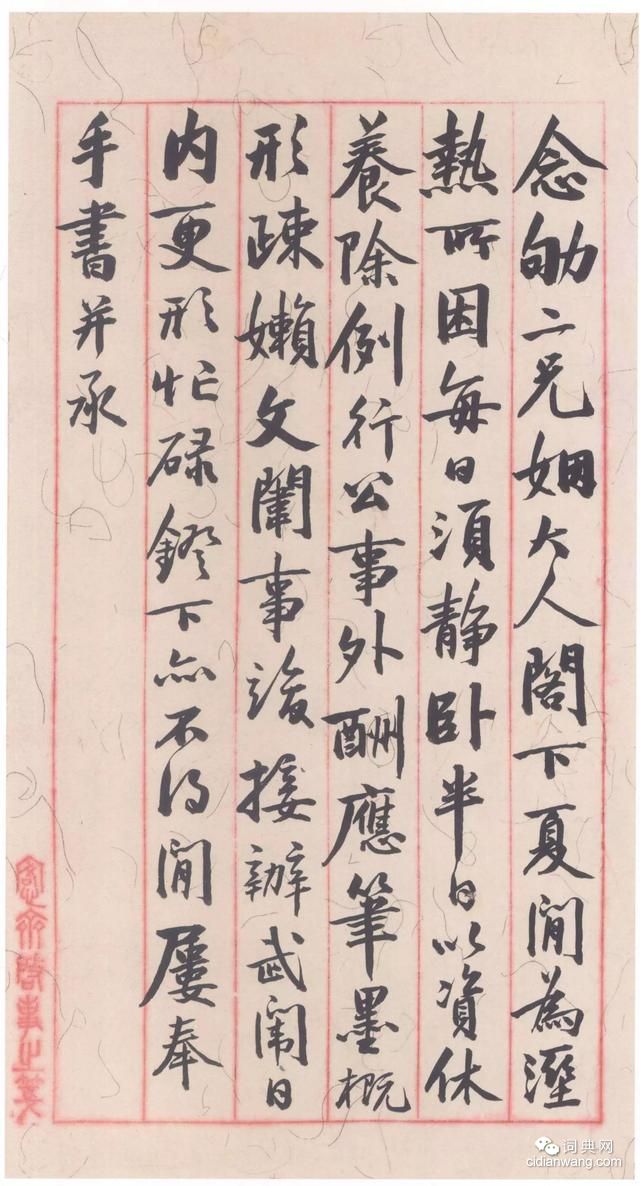 念劬二兄姻大人閣下夏間為溼
熱所困每日須静卧半日以資休
養除例行公事外酬應筆墨概
形疎嬾文闈事竣接辦武闈日
内更形忙碌鐙下亦不得閒屢奉
手書并承
愙齋啓事之箋
词典网
cidianwang.com